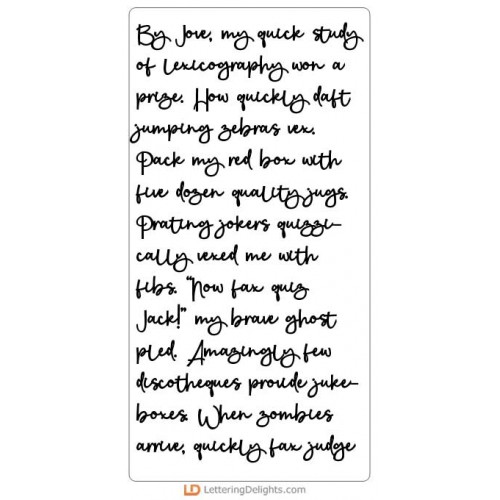 By Jove, my quick study
of lexicography won a
prize. How quickly daft
jumping zebras vex.
Pack my red box with
five dozen quality jugs.
Prating jokers quizzi-
cally vexed me with
fibs. "Now fax quiz
Jack!" my brave ghost
pled. Amazingly few
discotheques provide juke-
boxes. When zombies
arrive, quickly fax judge
LD LetteringDelights.com